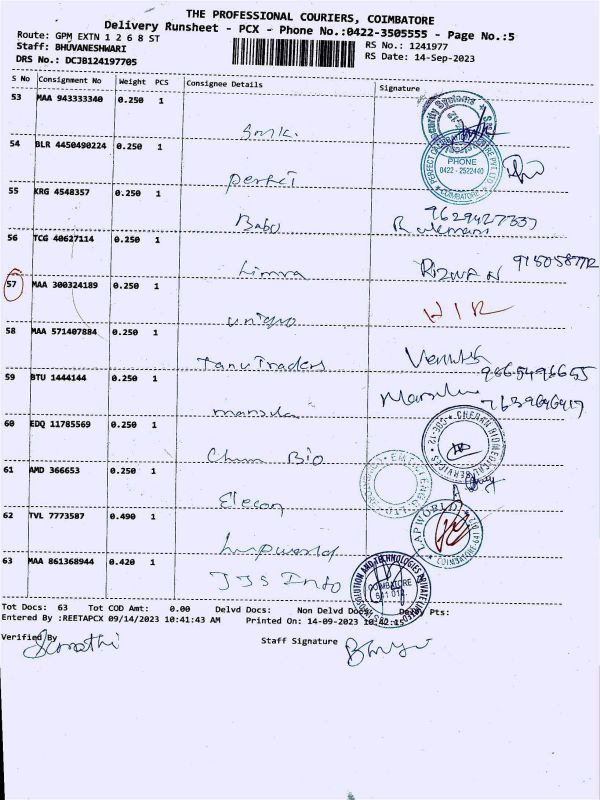 THE PROFESSIONAL COURIERS, COIMBATORE
Delivery Runsheet - PCX - Phone No.:0422-3505555 - Page No.:5
Route: GPM EXTN 1 2 6 8 ST
RS No.: 1241977
Staff: BHUVANESHWARI
RS Date: 14-Sep-2023
DRS No.: DCJB124197705
S No Consignment No Weight PCS Consignee Details Signature
53 MAA 943333340 0.250 1
54 BLR 4450490224 0.250 1 Perfect
PHONE
0422 - 2522440
COIMBATORE
55 KRG 4548357 0.250 1 Babu
9629427337
56 TCG 40627114 0.250 1 Limra RIZWAN
57 MAA 300324189 0.250 1 unique
58 MAA 571407884 0.250 1 Tanu Traders
9865496655
59 BTU 1444144 0.250 1
7639646419
60 EDQ 11785569 0.250 1 Bio
CHERAN BIOMEDICAL SERVICES
61 AMD 366653 0.250 1 Elecon
62 TVL 7773587 0.490 1 Lapworld
LAPWORLD
63 MAA 861368944 0.420 1 JJS Info
COIMBATORE
641 014
Tot Docs: 63 Tot COD Amt: 0.00 Delvd Docs: Non Delvd Docs: Pts:
Entered By :REETAPCX 09/14/2023 10:41:43 AM Printed On: 14-09-2023
Verified By Staff Signature